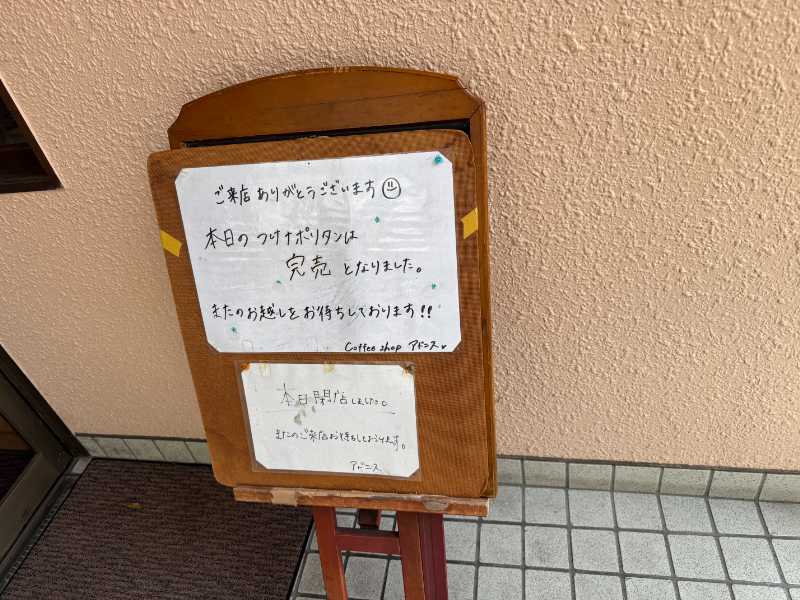 ご来店ありがとうございます
本日のつけナポリタンは
完売となりました。
またのお越しをお待ちしております!!
Coffee shop アドニス
本日閉店しました。
またのご来店お待ちしております。
アドニス